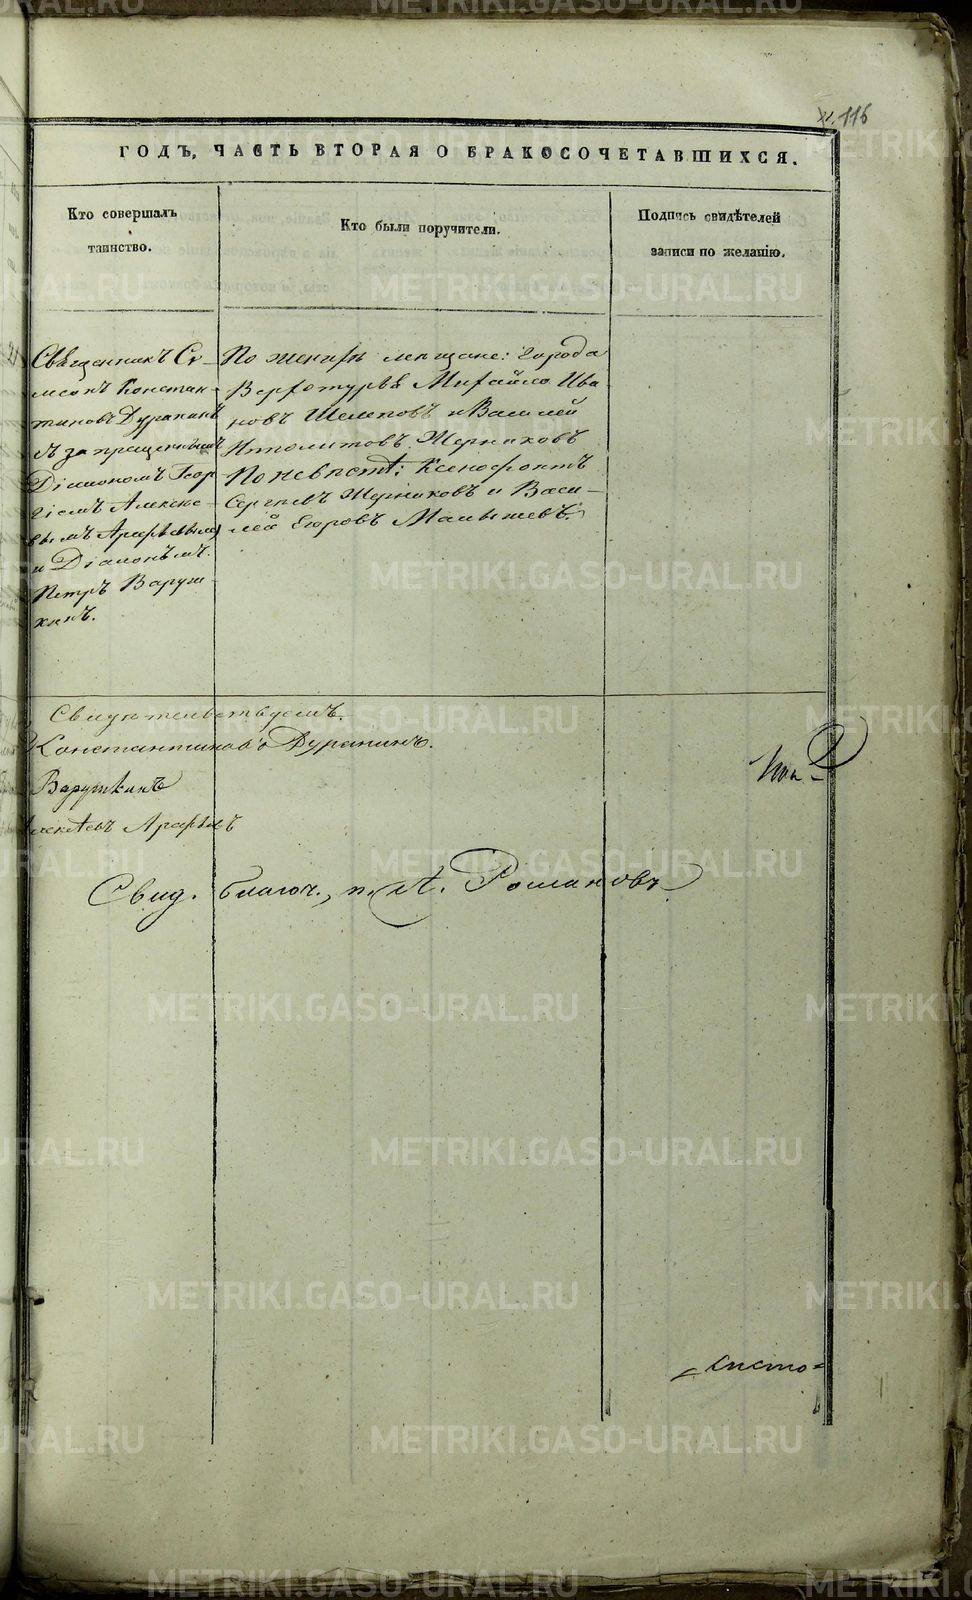 116
ГОДЪ, ЧАСТЬ ВТОРАЯ О БРАКОСОЧЕТАВШИХСЯ.
Кто совершалъ
таинство.
Кто были поручители.
Подпись свидѣтелей
записи по желанію.
Священникъ Си-
меонъ Констан-
тиновъ Дурапинъ
съ запрещеннымъ
Діакономъ Геор
гіемъ Алексѣе-
вымъ
и Діакономъ
Петръ Варуш-
кинъ.
По женихѣ мещане: города
Верхотурья Михайло Ива
новъ Шелеповъ и Василей
Ипполитовъ Жерниковъ
По невѣстѣ: Ксенофонтъ
Сергѣевъ Жерниковъ и Васи-
лей Егоровъ Малышевъ.
Свидѣтельствуемъ.
Константиновъ Дурапинъ.
Варушкинъ
Алексѣевъ
Свид. благоч., п. А. Романовъ
листо=
METRIKI.GASO-URAL.RU